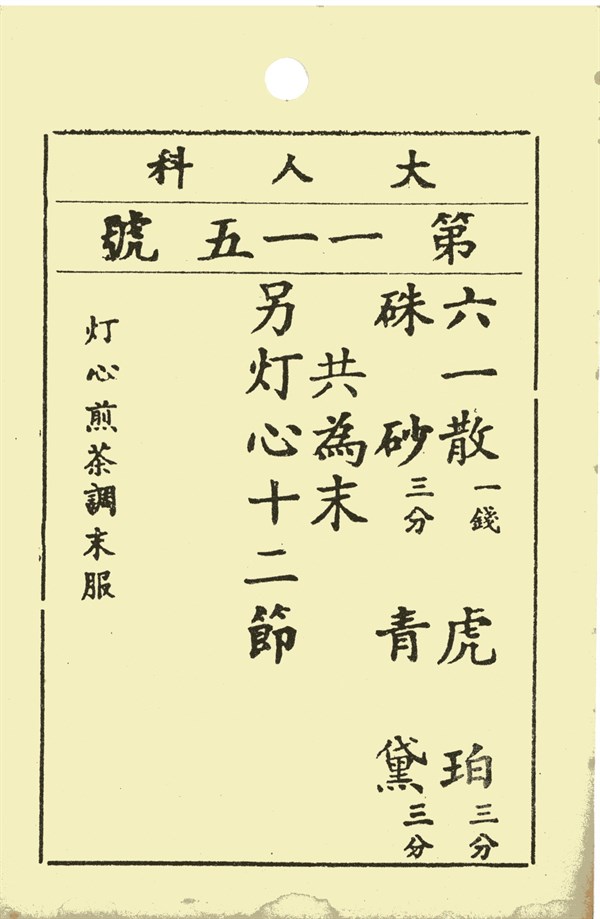 大人科
第一一五號
六一散一錢 虎珀三分
硃砂三分 青黛三分
共為末
另灯心十二節
灯心煎茶調末服